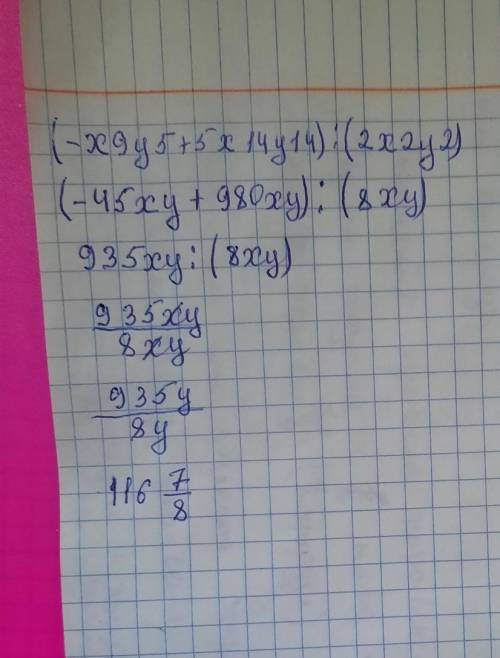 (-x9y5+5x14y14):(2x2y2)
(-45xy+980xy):(8xy)
935xy:(8xy)
935xy
8xy
935y
8y
116 7/8